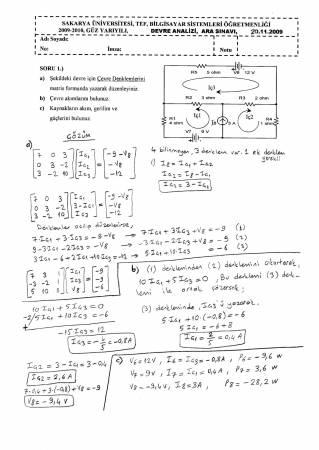 SAKARYA ÜNİVERSİTESİ, TEF, BİLGİSAYAR SİSTEMLERİ ÖĞRETMENLİĞİ
2009-2010, GÜZ YARIYILI, DEVRE ANALİZİ, ARA SINAVI, 20.11.2009
Adı Soyadı:
No: İmza: Notu
SORU 1.)
a) Şekildeki devre için Çevre Denklemlerini
matris formunda yazarak düzenleyiniz.
b) Çevre akımlarını bulunuz.
c) Kaynakların akım, gerilim ve
güçlerini bulunuz.
R5 5 ohm V6 12 V
IÇ3
R2 3 ohm R3 2 ohm
R1
4 ohm
IÇ1
I8
3 A
IÇ2
R4
1 ohm
V7 9 V
ÇÖZÜM
a)
[7 0 3] [IÇ1] [-9-V8]
[0 3 -2] [IÇ2] = [-V8]
[3 -2 10] [IÇ3] [-12]
4 bilinmeyen, 3 denklem var. 1 ek denklem
gerekli
I8 = IÇ1 + IÇ2
IÇ2 = I8 - IÇ1
IÇ2 = 3 - IÇ1
[7 0 3] [IÇ1] [-9-V8]
[0 3 -2] [3-IÇ1] = [-V8]
[3 -2 10] [IÇ3] [-12]
Denklemler açıp düzenlenirse,
7IÇ1 + 3IÇ3 = -9-V8 → 7IÇ1 + 3IÇ3 + V8 = -9 (1)
9-3IÇ1 -2IÇ3 = -V8 → -3IÇ1 -2IÇ3 + V8 = -9 (2)
3IÇ1 -6 + 2IÇ1 + 10IÇ3 = -12 → 5IÇ1 + 10IÇ3 = -6 (3)
[7 3 1] [IÇ1] [-9]
[-3 -2 1] [IÇ3] = [-9]
[5 10 0] [V8] [-6]
b) (1) denkleminden (2) denklemini çıkartarak,
10IÇ1 + 5IÇ3 = 0, Bu denklemi (3) denk-
lemi ile ortak çözersek;
10IÇ1 + 5IÇ3 = 0
-2/5IÇ1 + 10IÇ3 = -6
+
-15IÇ3 = 12
IÇ3 = -4/5 = -0,8A
(3) denkleminde, IÇ3'ü yazarak.
5IÇ1 + 10·(-0,8) = -6
5IÇ1 = -6+8
IÇ1 = 2/5 = 0,4 A
IÇ2 = 3 - IÇ1 = 3-0,4
IÇ2 = 2,6 A
7·0,4 + 3·(-0,8) + V8 = -9
V8 = -9,4 V
c) V6 = 12V, I6 = IÇ3 = -0,8A, P6 = -9,6 W
V7 = 9V, I7 = IÇ1 = 0,4A, P7 = 3,6 W
V8 = -9,4V, I8 = 3A, P8 = -28,2 W